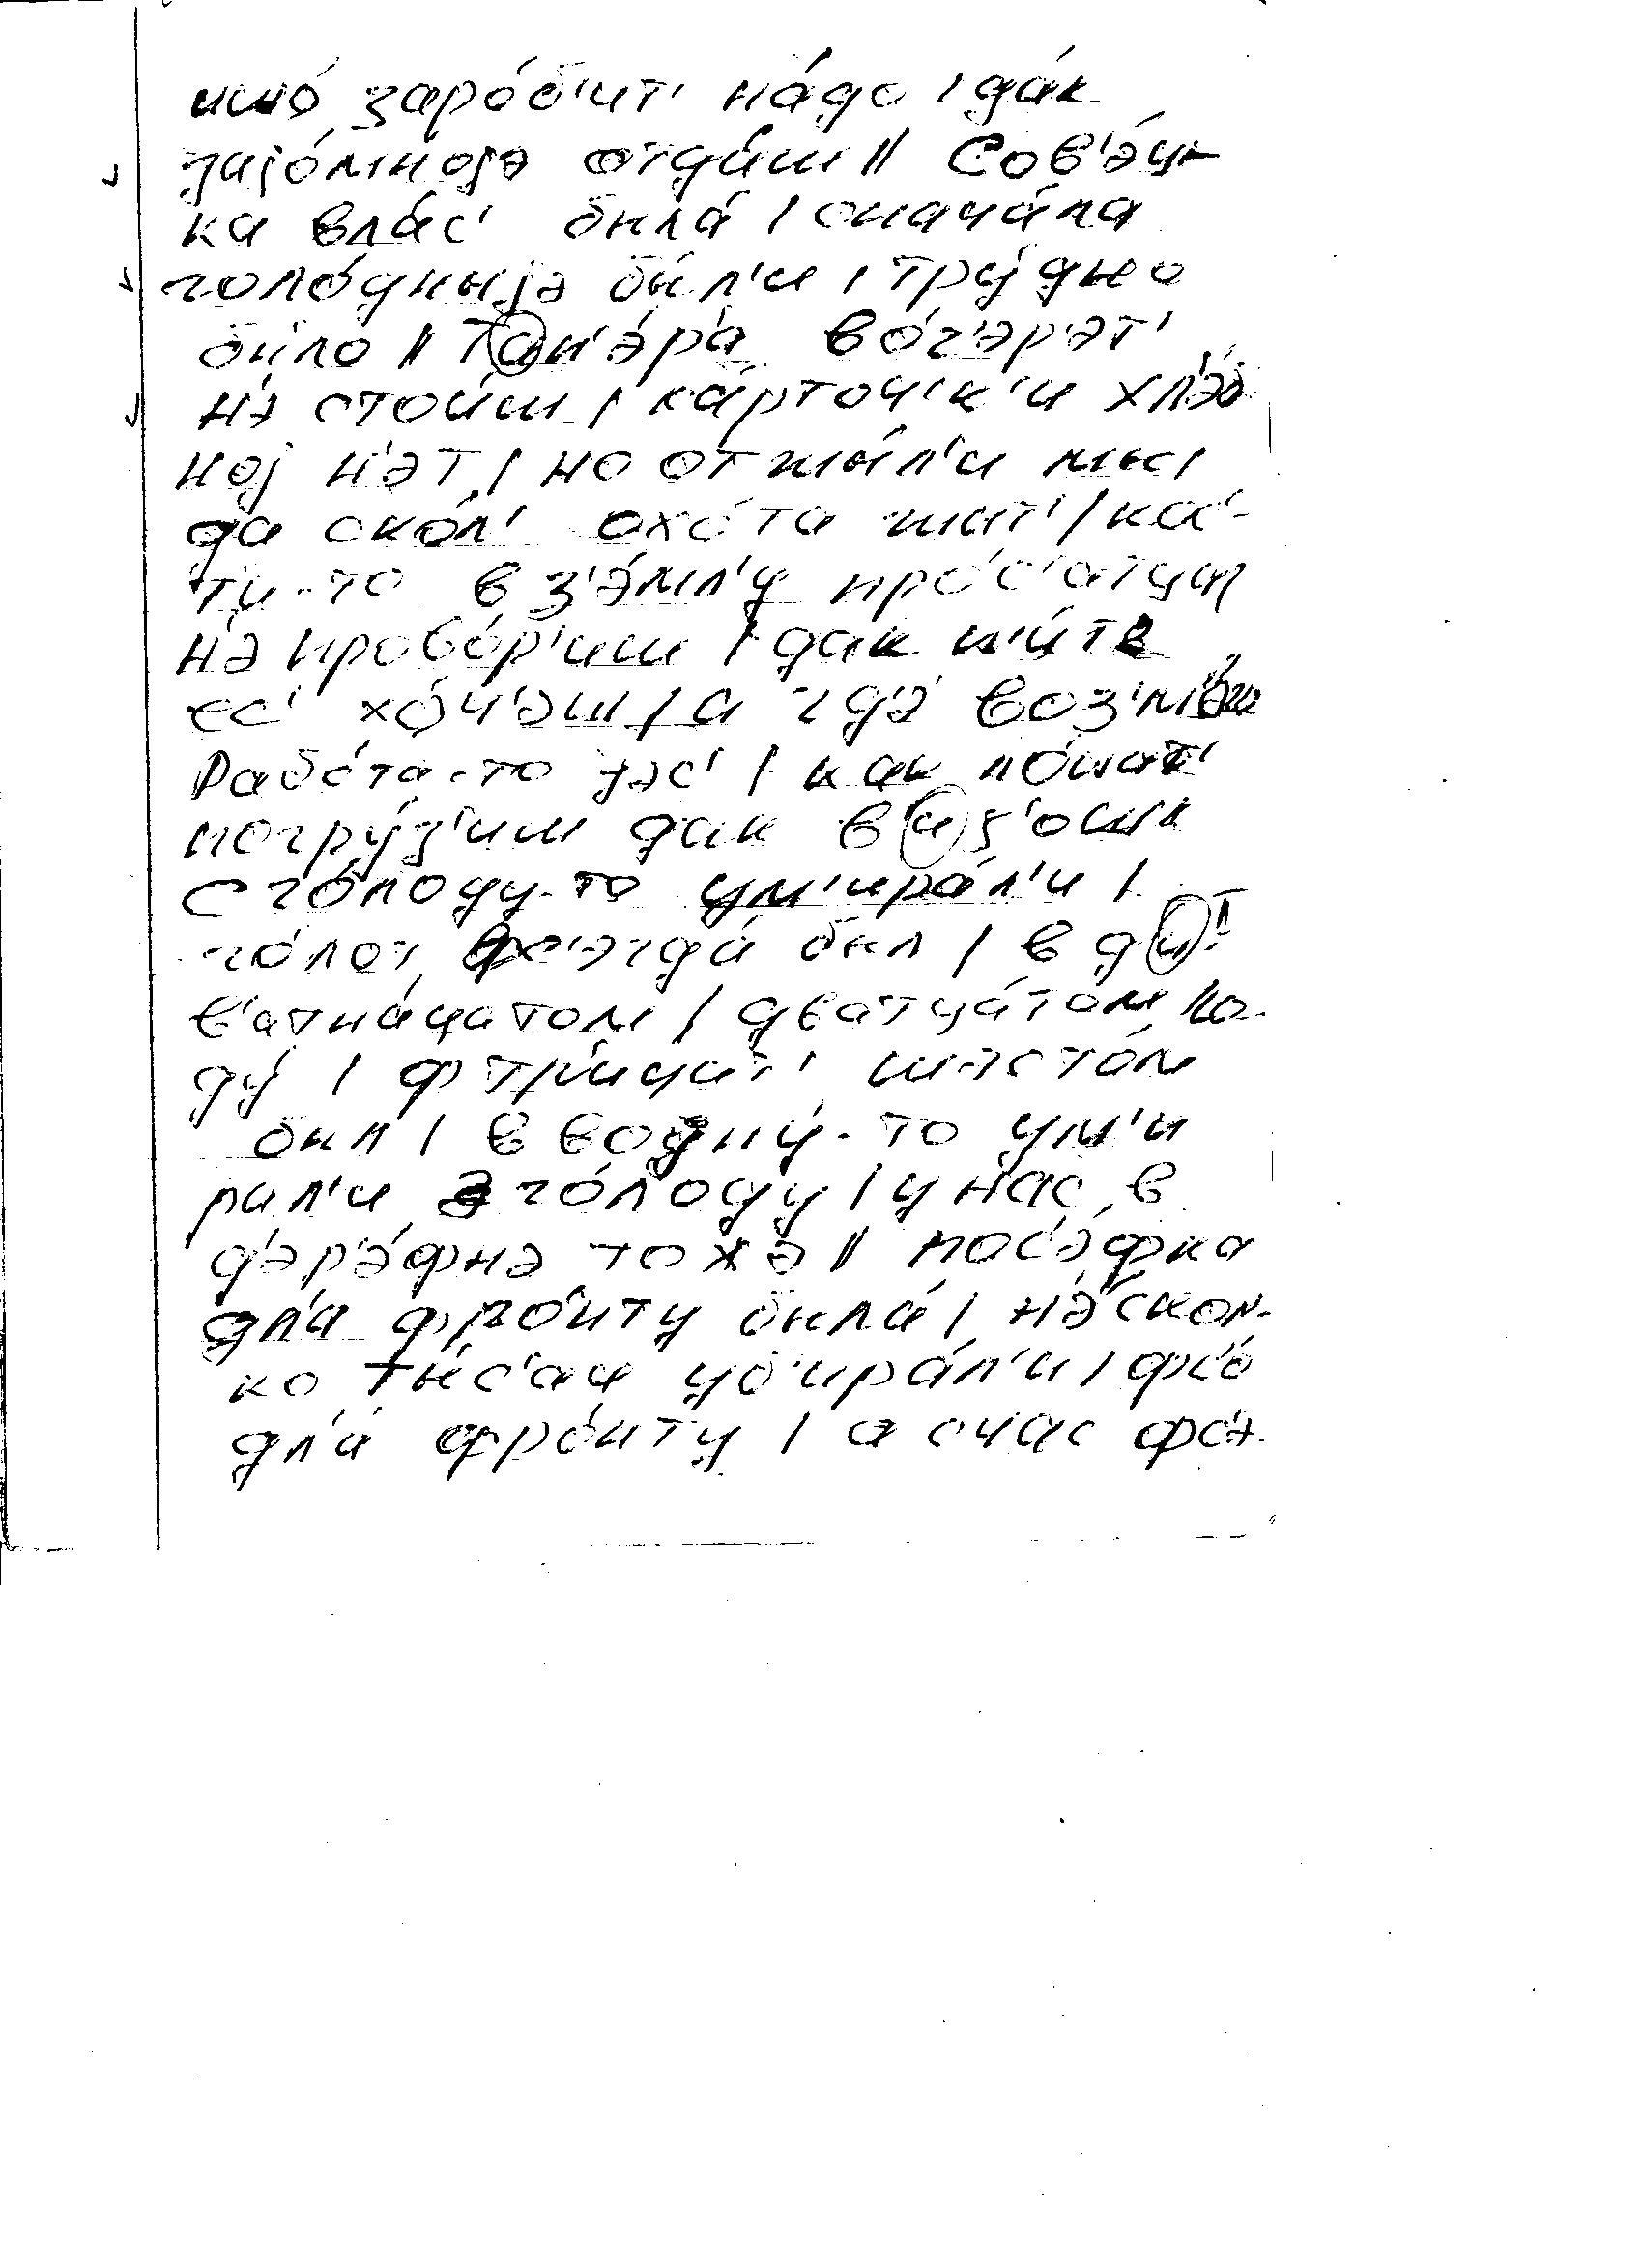 ишо́ заро́б'ит' на́до / да́к
зајо́мноjэ отда́ш // Сов'э́ц-
ка влас' была́ / сначала
голо́дныjэ бы́л'и / тру́дно
бы́ло // Т'ап'э́р'а во́г'эр'эт'
н'э стоиш / ка́рточ'к'и хл'эб
ноj н'эт / но отжы́л'и мы /
да скол' охо́та жыт' / ка-
ти-то в з'э́мл'у про́с'атца
н'э прово́р'иш / дак
ес' хо́ч'эш / а гд'э воз'м'о́ш
Рабо́та-то јэс' / как ло́шат'
погру́з'иш дак в'из'ош
с го́лоду-то ум'ира́л'и /
го́лот фс'эгда́ был / в д'и-
в'атна́цатом / дватца́том го-
ду́ / ф три́цит' шэсто́м
был / в воjну́-то ум'и
рал'и з го́лоду / у нас в
д'эр'э́фн'э тожэ // пос'э́фка
дл'а фро́нту была́ / н'э́скол'-
ко ты́с'ач уб'ира́л'и / фс'о
дл'а фро́нту / а счас фс'э-